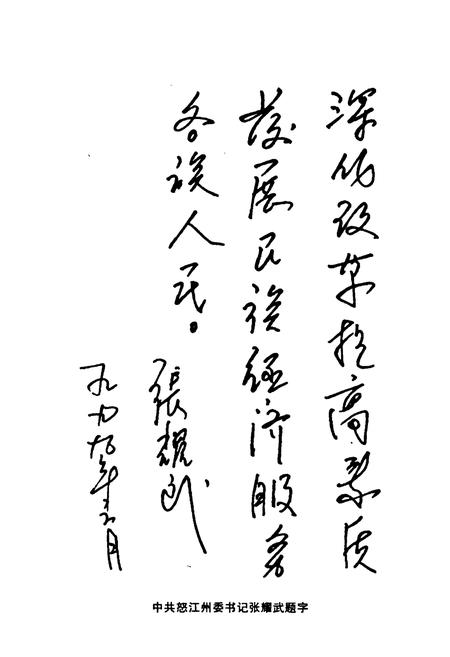 深化改革提高素质
发展民族经济服务
各族人民。
張耀武
一九九年月
中共怒江州委书记张耀武题字